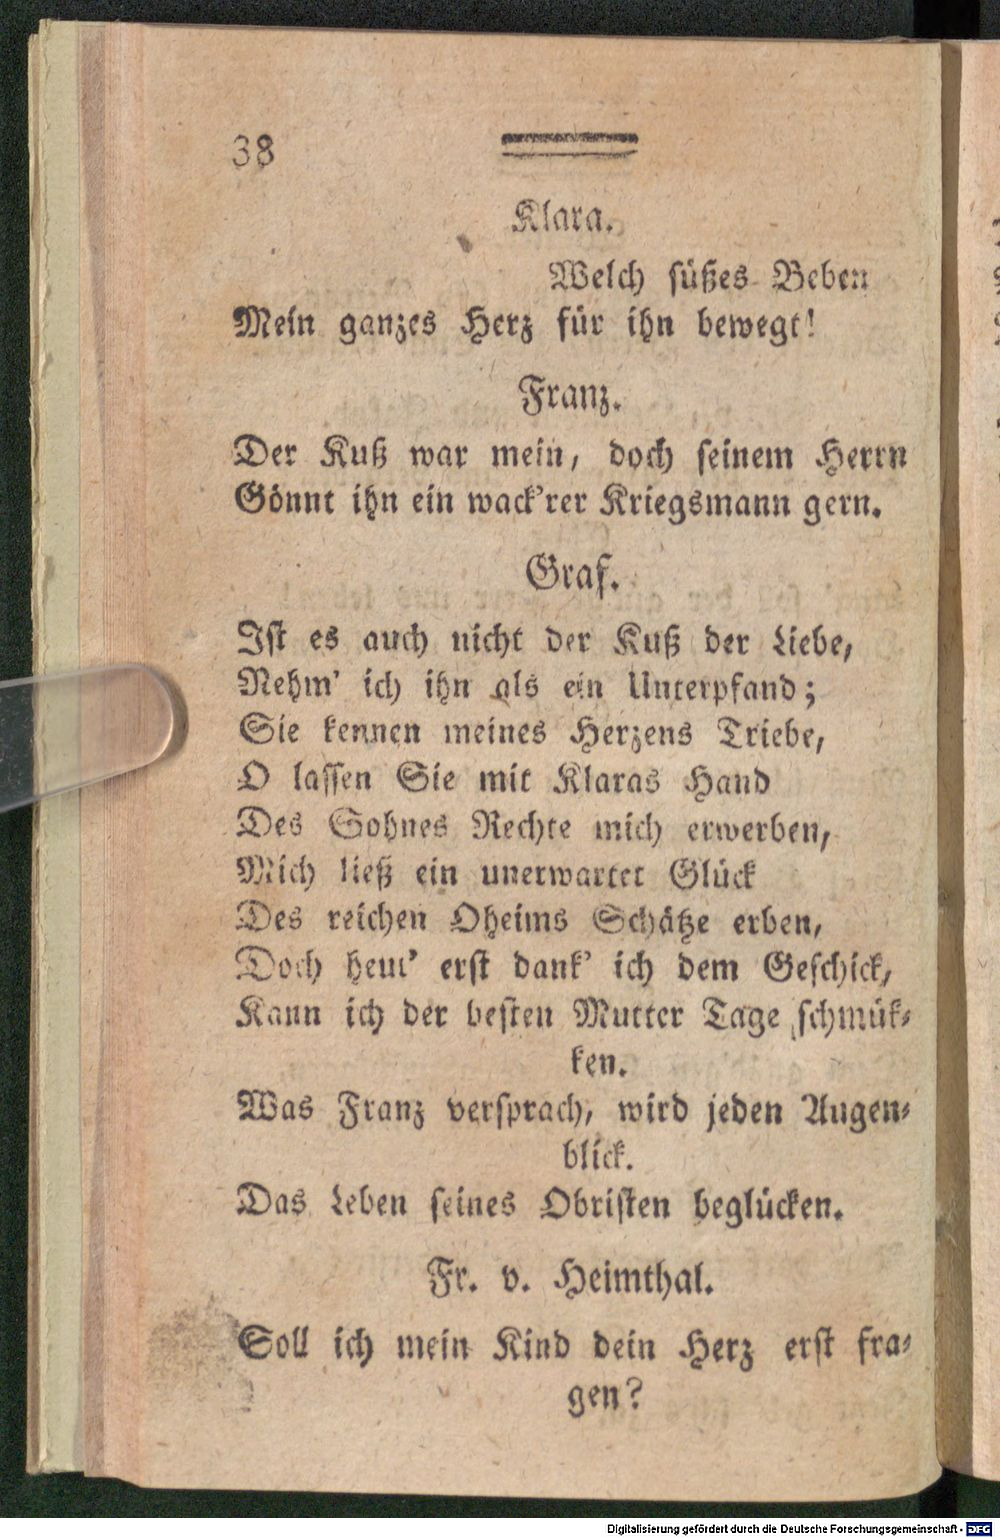 38
Klara.
Welch süßes Beben
Mein ganzes Herz für ihn bewegt!
Franz.
Der Kuß war mein, doch seinem Herrn
Gönnt ihn ein wack'rer Kriegsmann gern.
Graf.
Ist es auch nicht der Kuß der Liebe,
Nehm' ich ihn als ein Unterpfand;
Sie kennen meines Herzens Triebe,
O lassen Sie mit Klaras Hand
Des Sohnes Rechte mich erwerben,
Mich ließ ein unerwartet Glück
Des reichen Oheims Schätze erben,
Doch heut' erst dank' ich dem Geschick,
Kann ich der besten Mutter Tage schmük-
ken.
Was Franz versprach, wird jeden Augen-
blick.
Das Leben seines Obristen beglücken.
Fr. v. Heimthal.
Soll ich mein Kind dein Herz erst fra-
gen?
Digitalisierung gefördert durch die Deutsche Forschungsgemeinschaft - DFG